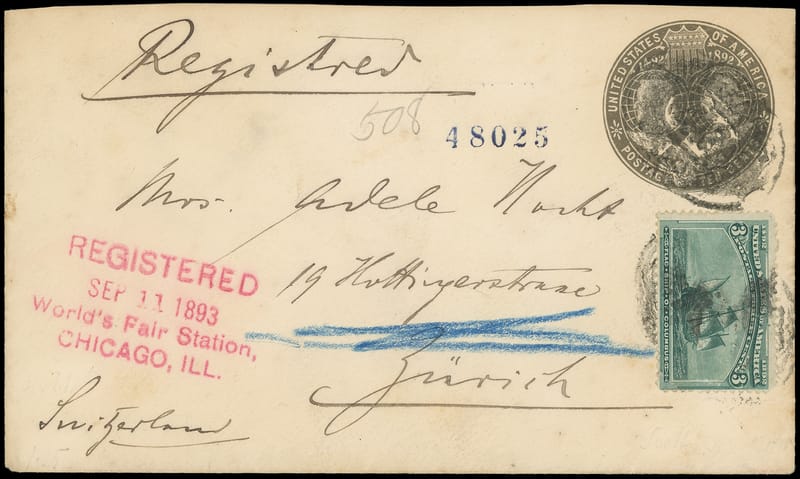 Registred
UNITED STATES OF AMERICA
1492 1892
POSTAGE TEN CENTS
508
48025
Mrs. Adele Hocht
19 Hottingerstrasse
Zürich
Switzerland
REGISTERED
SEP 11 1893
World's Fair Station,
CHICAGO, ILL.
3 3
UNITED STATES OF AMERICA